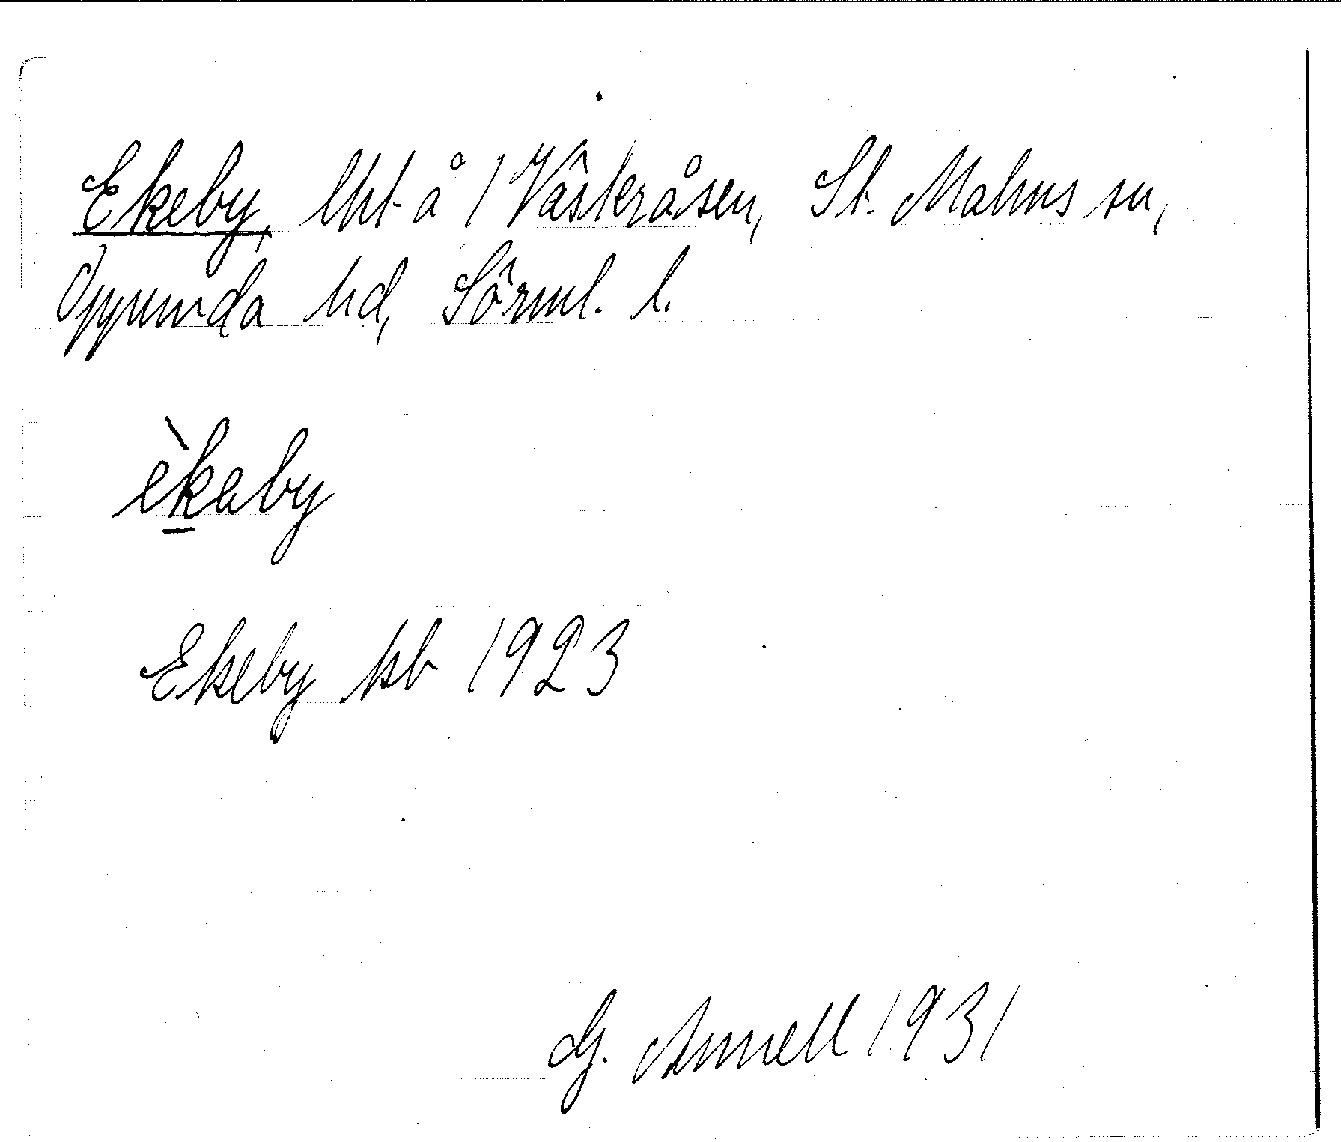 Ekeby, lht å 1 Västeråsen, St. Malms sn,
Oppunda hd, Sörml. l.
èkeby
Ekeby kb 1923
G. Annell 1931